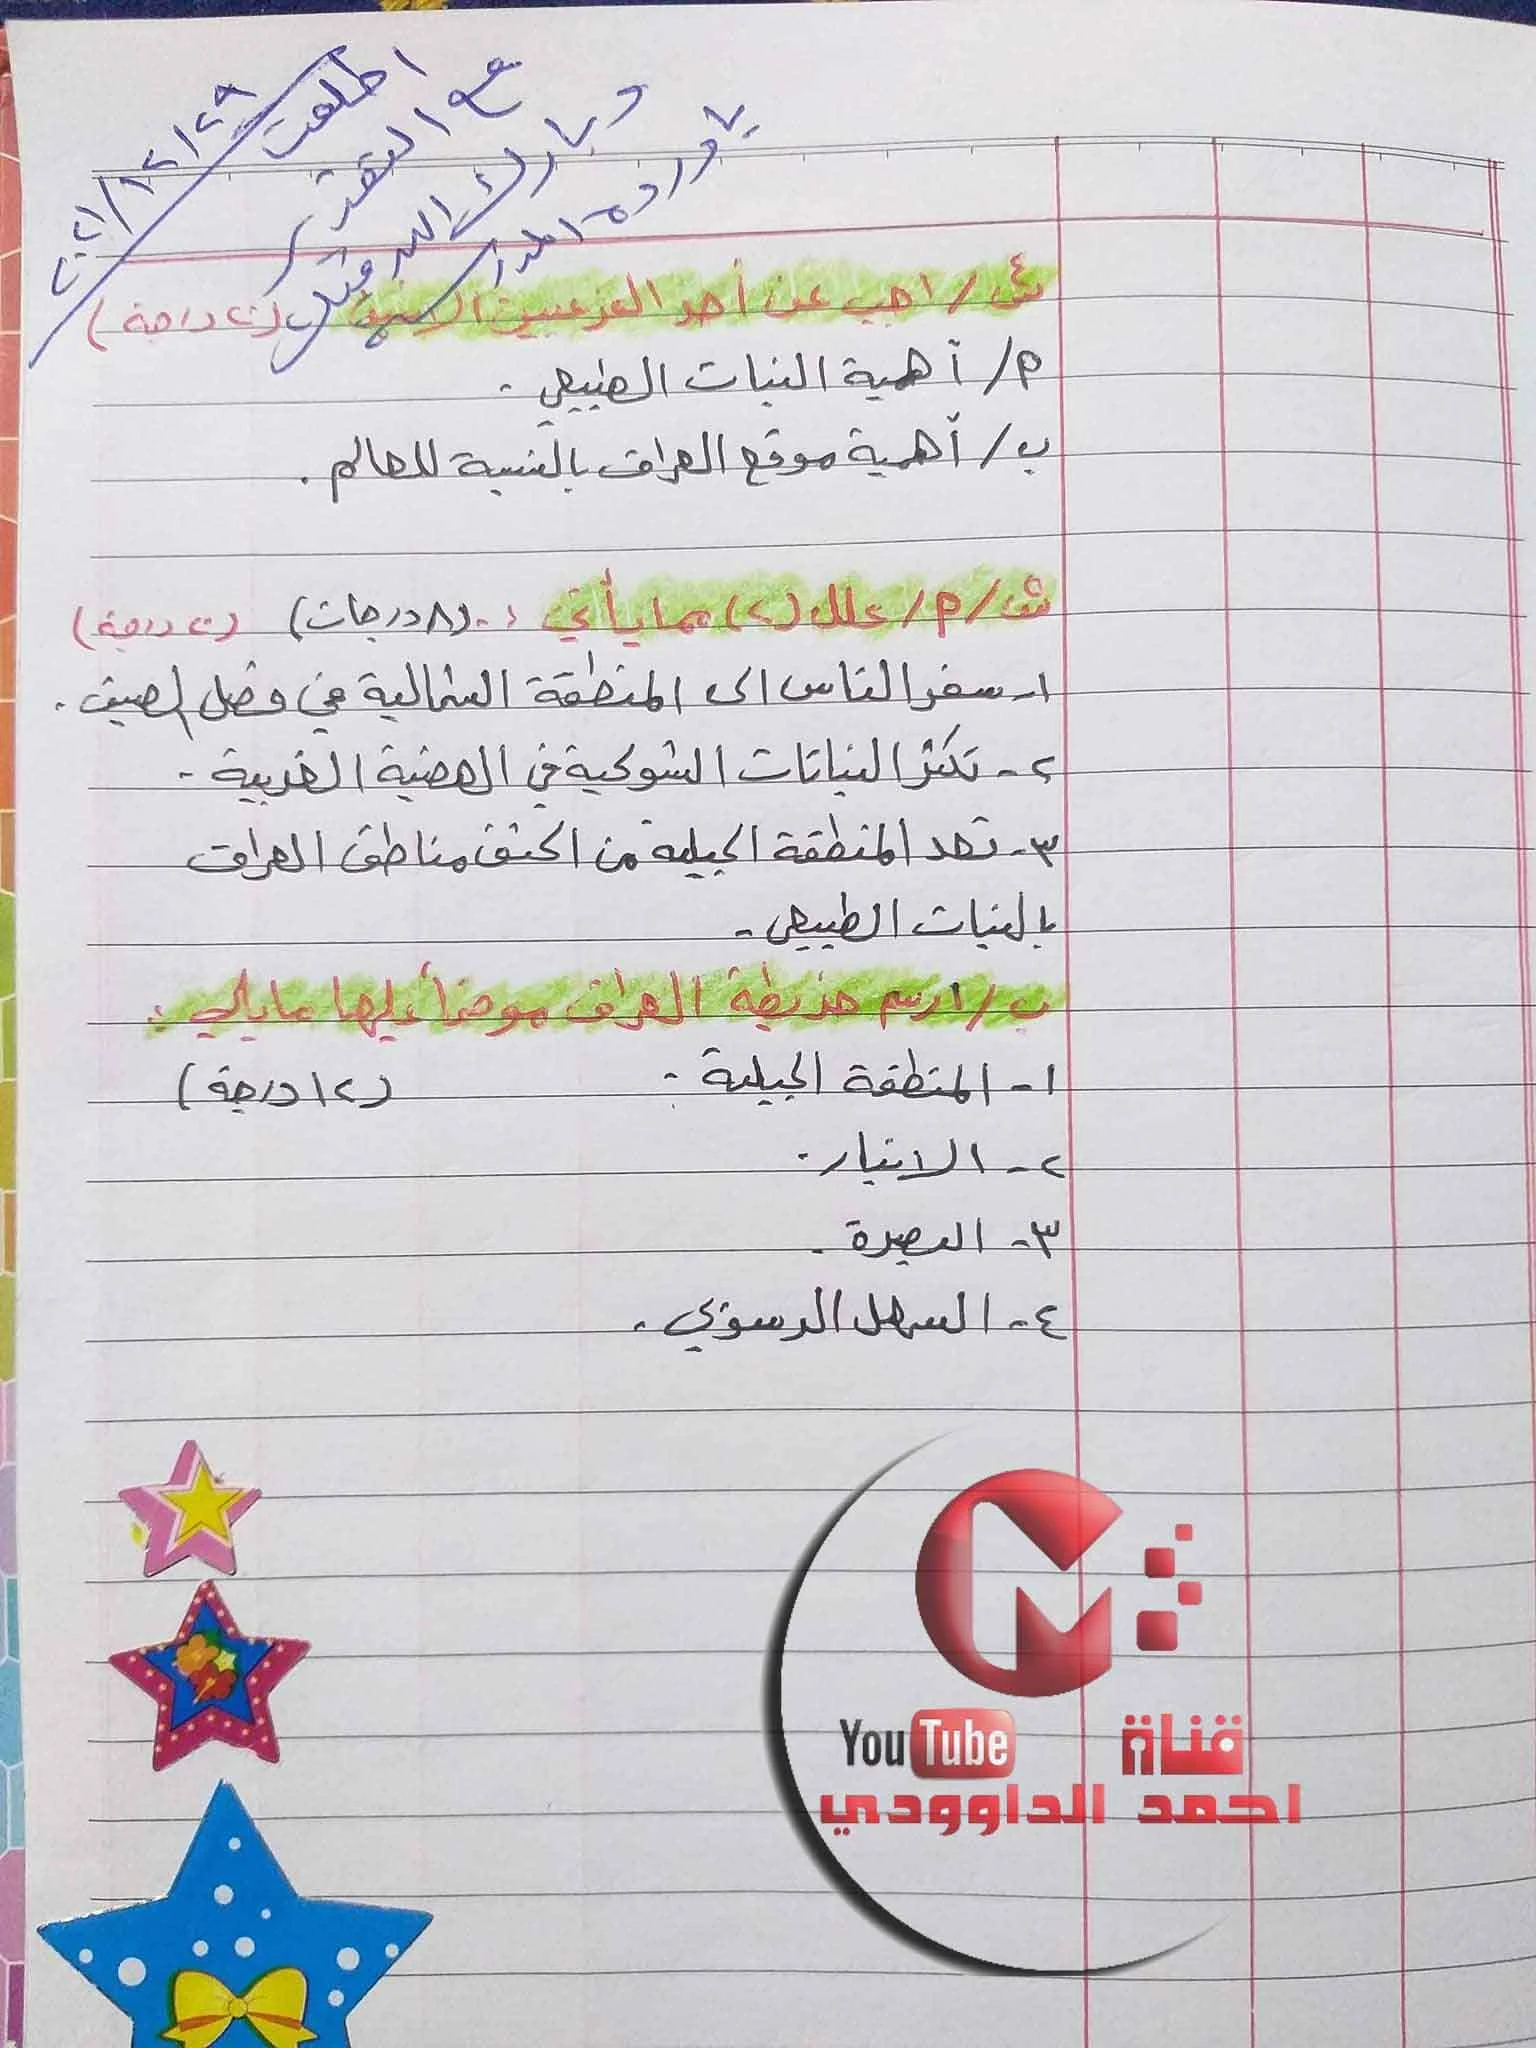 اطلعت
٢٠٢١/١٢/٢٨
مع التقدير
وبارك الله فيك
س٤/ اجب عن أحد الفرعيين الاتية (٢٠ درجة)
م/ أهمية النبات الطبيعي.
ب/ أهمية موقع العراق بالنسبة للعالم.
س٥/م/ علل (٢) مما يأتي :- (٨ درجات) (٢٠ درجة)
١- سفر الناس الى المنطقة الشمالية في فصل الصيف.
٢- تكثر النباتات الشوكية في الهضبة الغربية.
٣- تعد المنطقة الجبلية من اكثف مناطق العراق
بالنبات الطبيعي.
ب/ ارسم خريطة العراق موضحاً عليها مايلي :
١- المنطقة الجبلية. (١٢ درجة)
٢- الانبار.
٣- البصرة.
٤- السهل الرسوبي.
YouTube قناة
احمد الداوودي